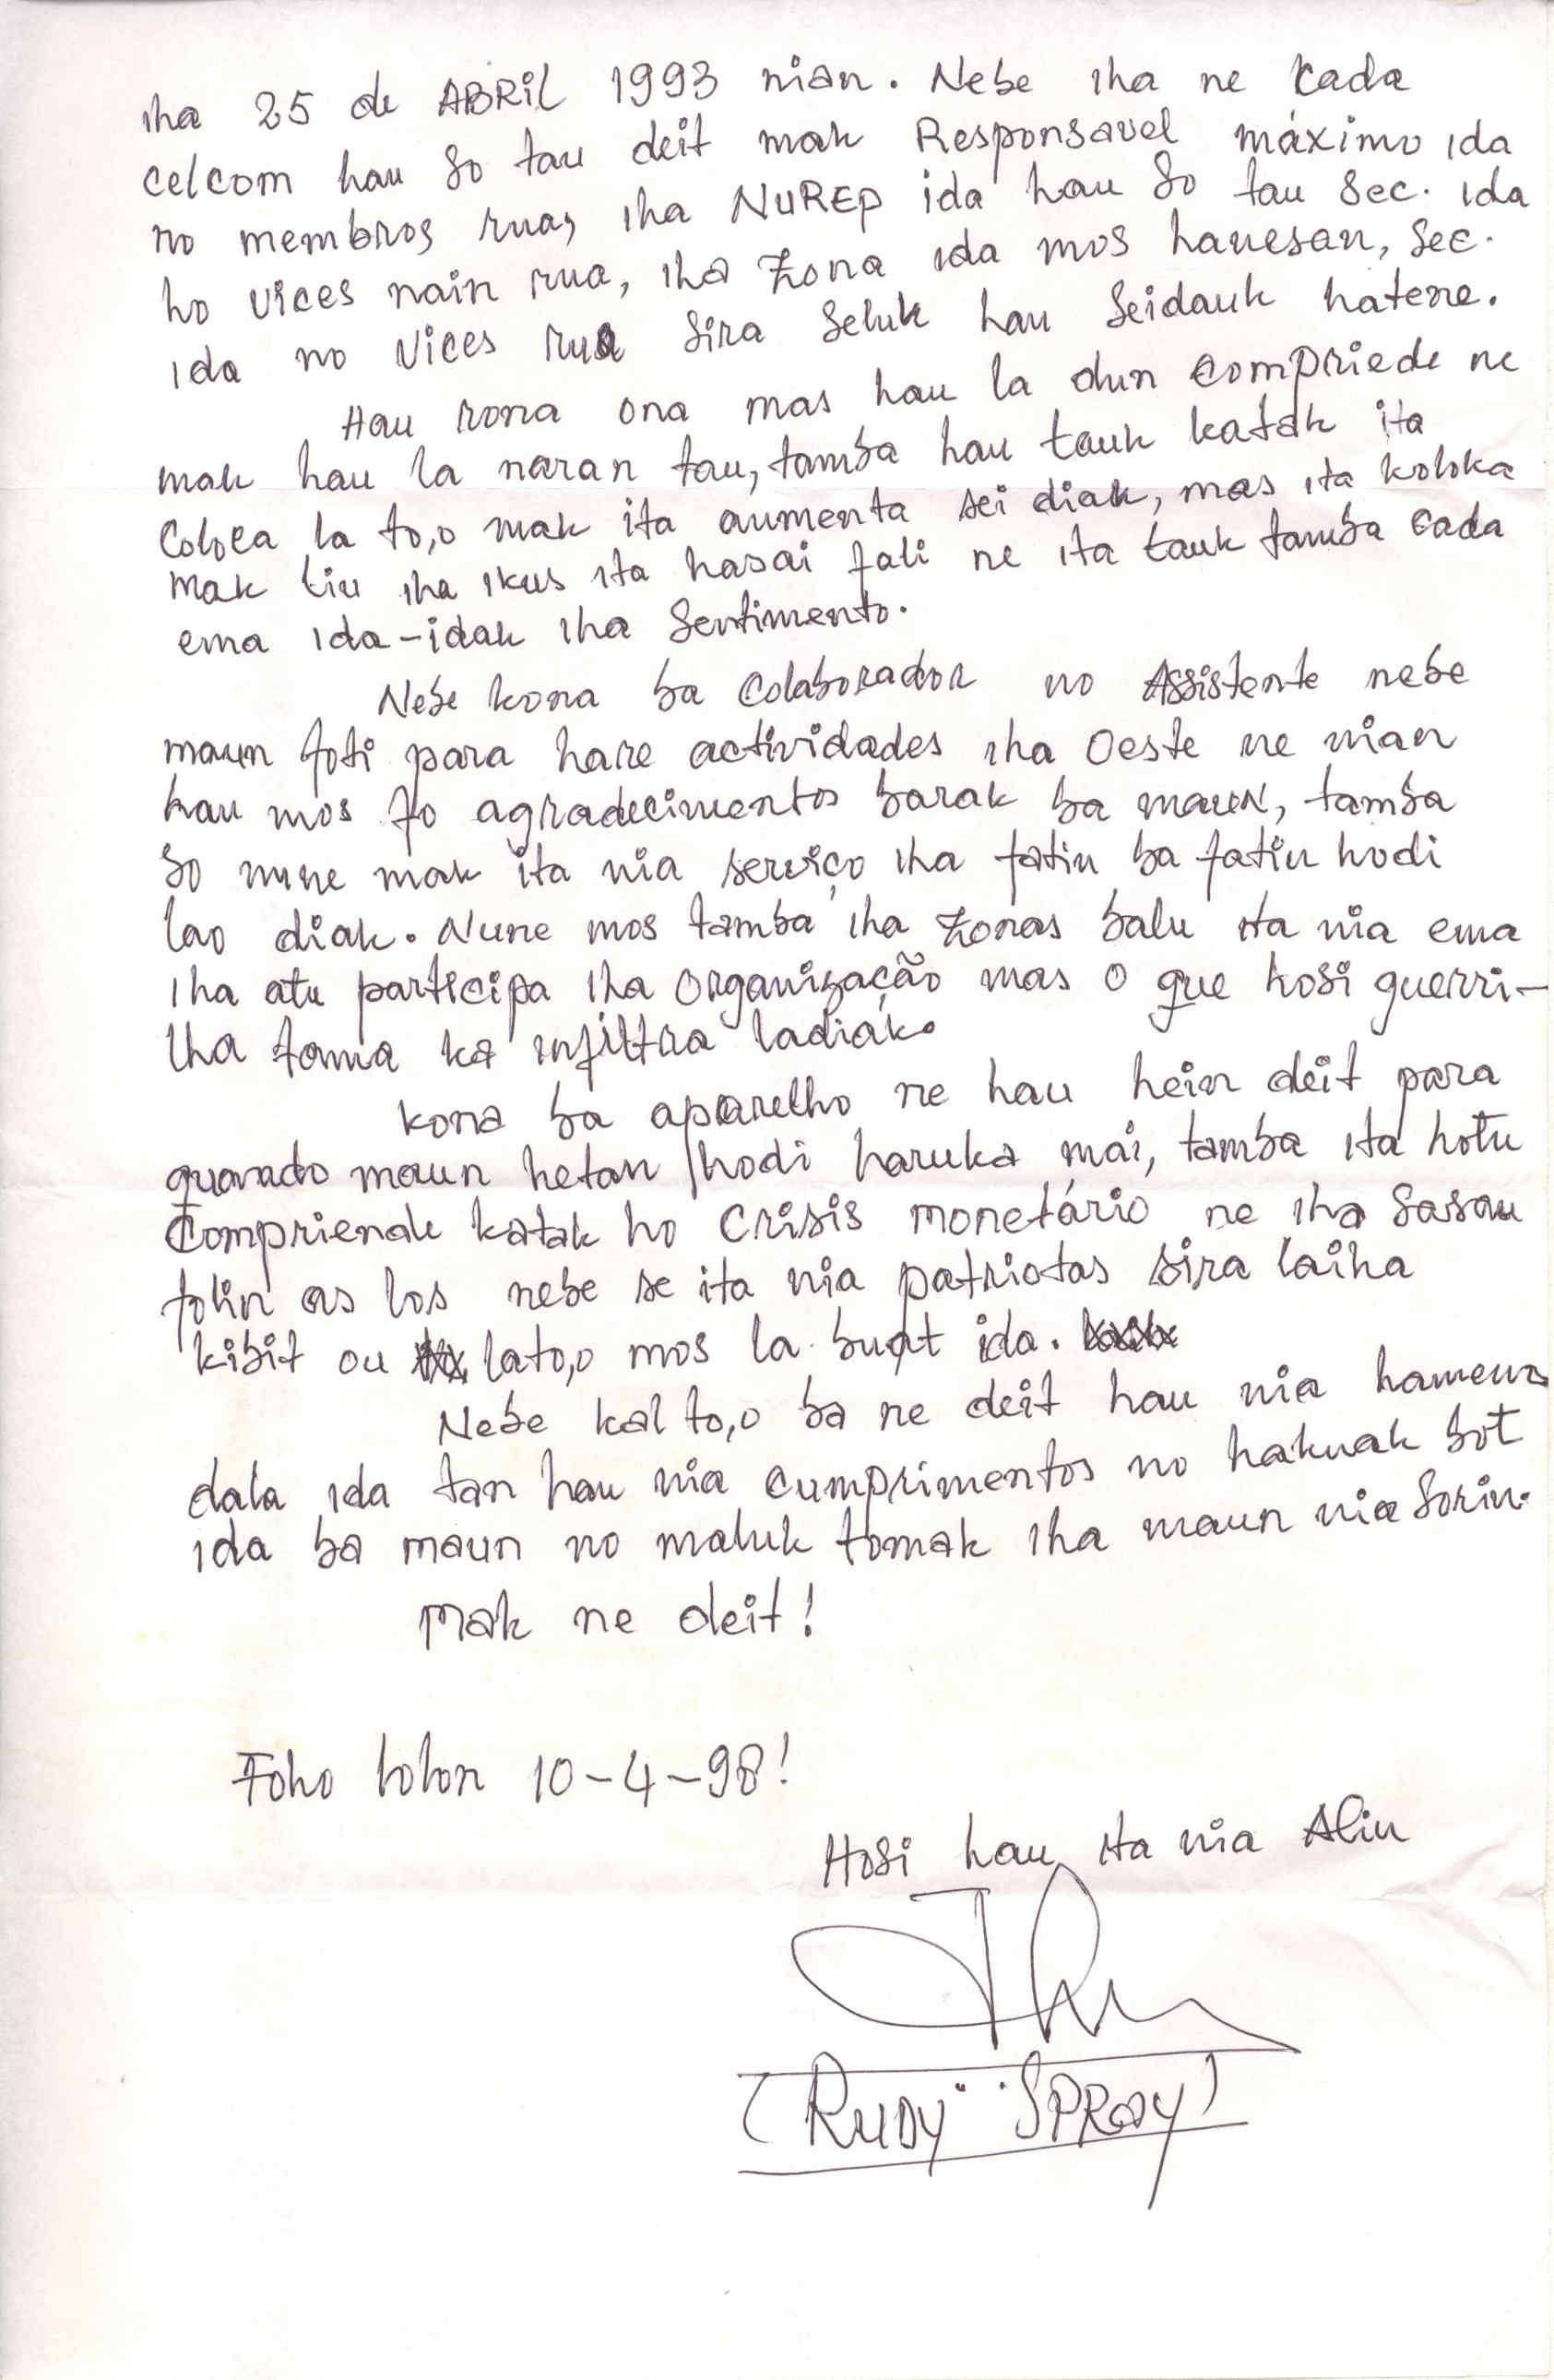 iha 25 de ABRIL 1993 nian. Nebe iha ne kada
celcom hau so tau deit mak Responsavel máximo ida
no membros ruas, iha NUREP ida hau so tau Sec. ida
ho vices nain rua, iha Zona ida mos hanesan, Sec.
ida no vices rua sira seluk hau seidauk hatene.
Hau rona ona mas hau la dun compriede ne
mak hau la naran tau, tamba hau tauk katak ita
coloca la to,o mak ita aumenta sei diak, mas ita koloka
mak liu iha ikus ita hasai fali ne ita tauk tamba cada
ema ida-idak iha Sentimento.
Nebe kona ba Colaborador no Assistente nebe
maun foti para hare actividades iha Oeste ne nian
hau mos fo agradecimentos barak ba maun, tamba
so nune mak ita nia serviço iha fatin ba fatin hodi
lao diak. Nune mos tamba iha Zonas balu ita nia ema
iha atu participa iha Organização mas o que hosi guerri-
lha tama ka infiltra ladiak.
kona ba aparelho ne hau hein deit para
quando maun hetan hodi haruka mai, tamba ita hotu
Compriende katak ho Crisis monetário ne iha sasau
folin as los nebe se ita nia patriotas sira laiha
kibit ou lato,o mos la buat ida.
Nebe kal to,o ba ne deit hau nia hamenus
dala ida tan hau nia cumprimentos no hakuak bot
ida ba maun no maluk tomak iha maun nia sorin.
Mak ne deit!
Foho lolon 10-4-98!
Hosi hau ita nia Alin
(RUDY SPRAY)